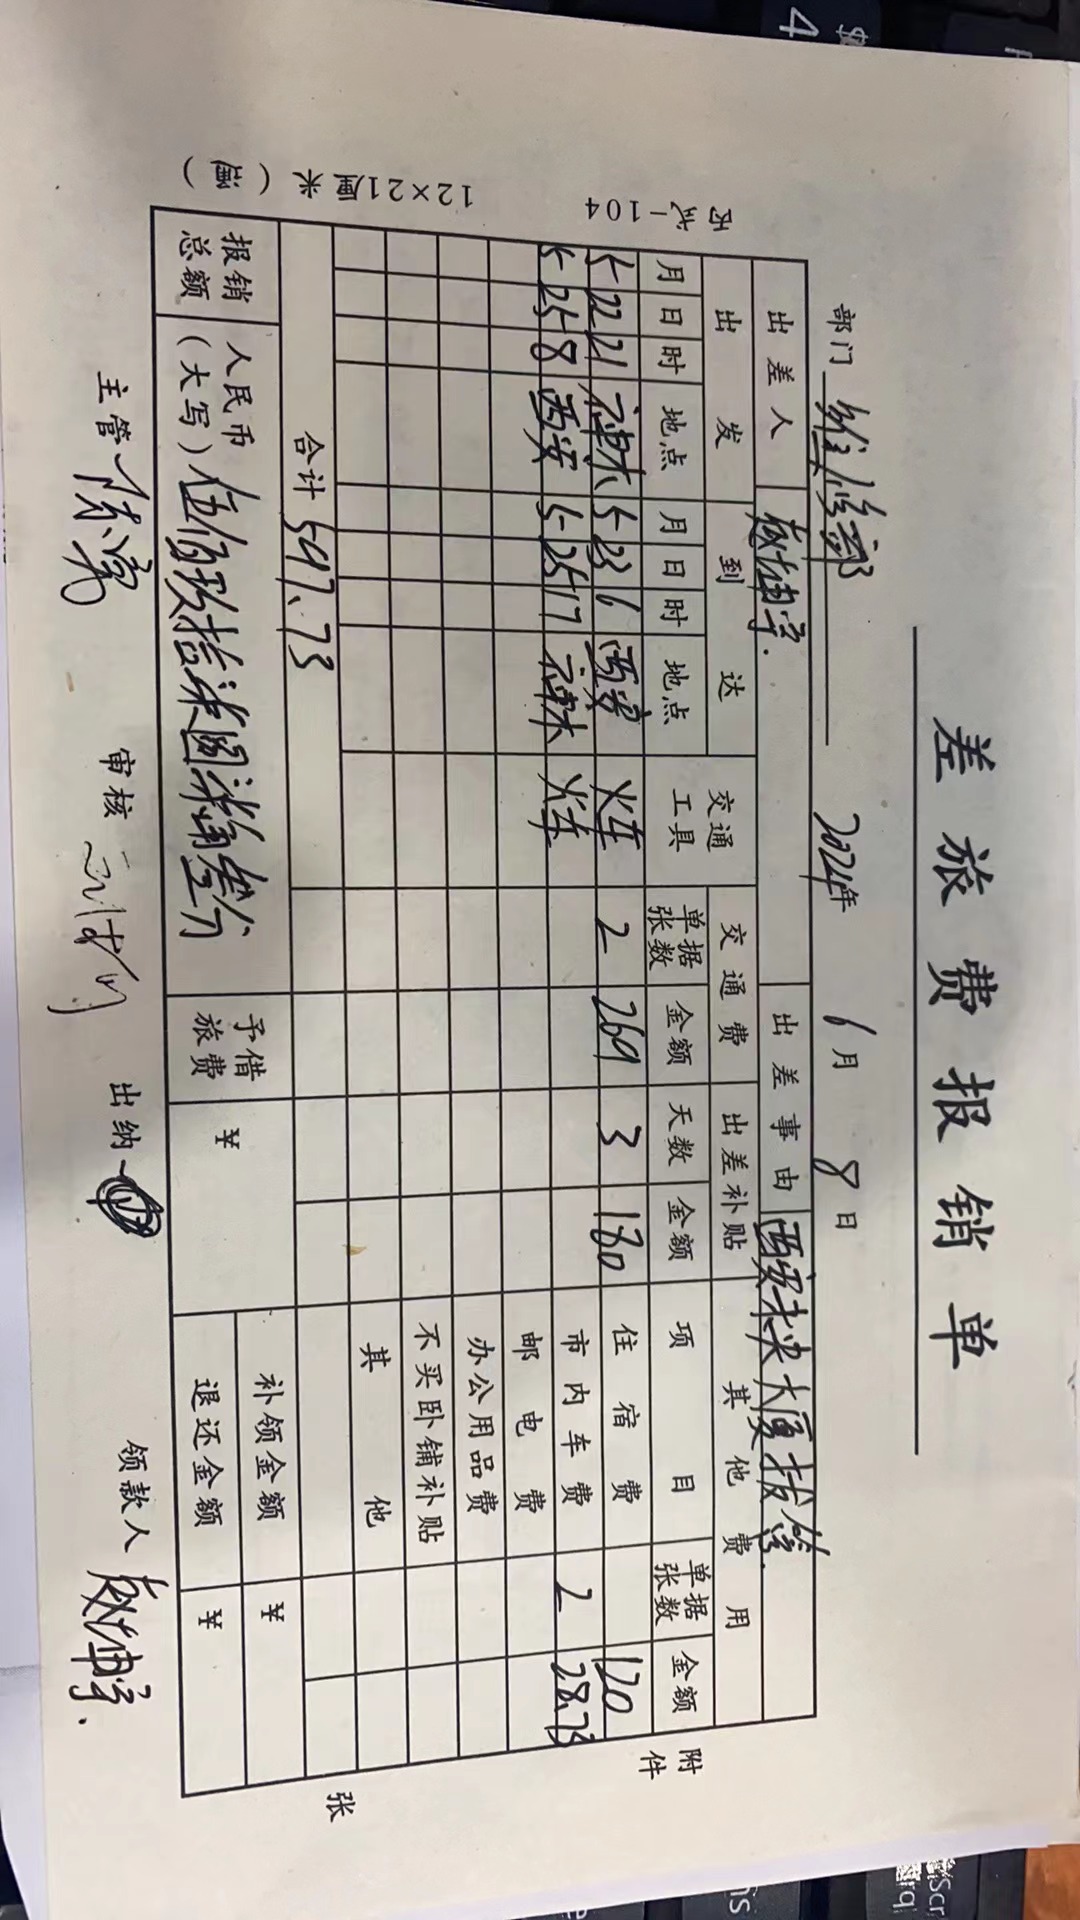 差旅费报销单
部门 维修部 2024年 6月 8日
出差人 出差事由 西安未央大厦拔管
出发 到达 交通工具 交通费 出差补贴 其他费用
月 日 时 地点 月 日 时 地点 单据张数 金额 天数 金额 项目 单据张数 金额
5 22 21 神木 5 23 6 西安 火车 2 269 3 180 住宿费 120
5 25 8 西安 5 25 17 神木 火车 市内车费 2 28.73
邮电费
办公用品费
不买卧铺补贴
其他
合计 597.73
报销总额 人民币(大写) 伍佰玖拾柒圆柒角叁分 予借旅费 ¥ 补领金额 ¥
退还金额 ¥
主管 审核 出纳 领款人
附件 张
丙式-104 12×21厘米
4
$